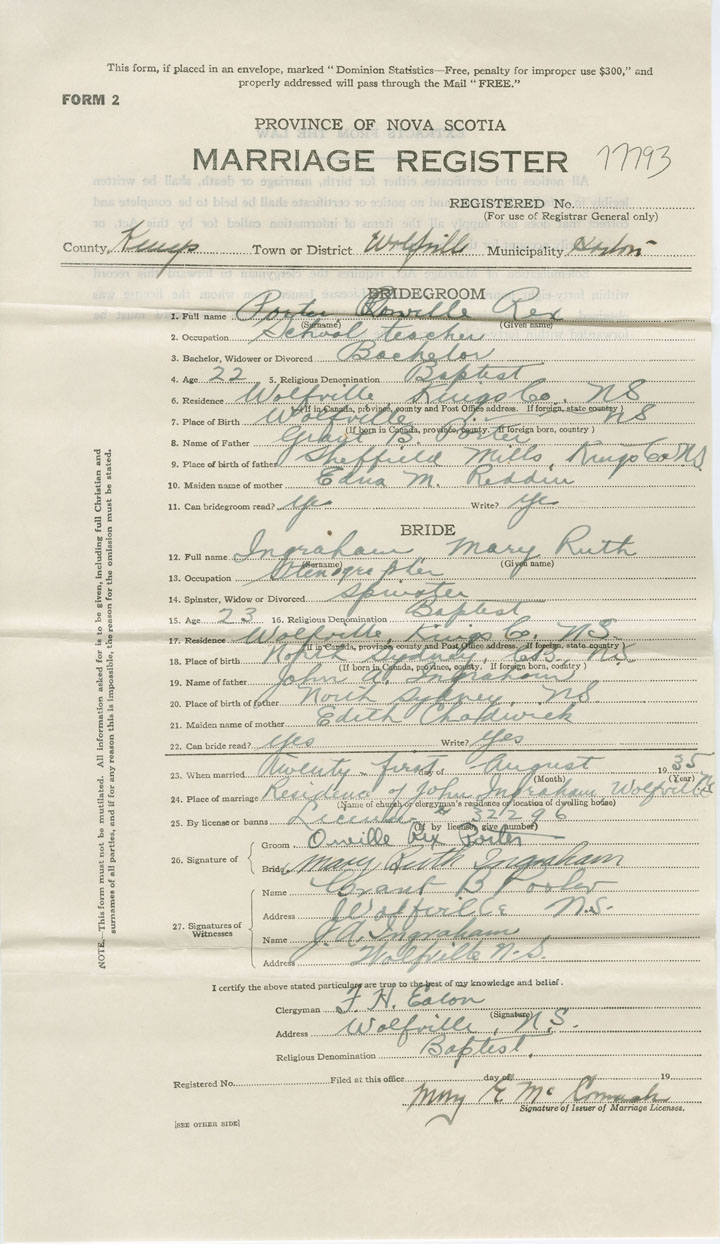 This form, if placed in an envelope, marked "Dominion Statistics—Free, penalty for improper use $300," and
properly addressed will pass through the Mail "FREE."
FORM 2
PROVINCE OF NOVA SCOTIA
MARRIAGE REGISTER 17793
REGISTERED No.
(For use of Registrar General only)
County, Kings Town or District Wolfville Municipality
BRIDEGROOM
1. Full name Porter Orville Rex
(Surname) (Given name)
2. Occupation School teacher
3. Bachelor, Widower or Divorced Bachelor
4. Age 22 5. Religious Denomination Baptist
6. Residence Wolfville Kings Co. NS
(If in Canada, province, county and Post Office address. If foreign, state country)
7. Place of Birth Wolfville NS
(If born in Canada, province, county. If foreign born, country)
8. Name of Father Grant B. Porter
9. Place of birth of father Sheffield Mills, Kings Co. N.S.
10. Maiden name of mother Edna M. Reddin
11. Can bridegroom read? Yes Write? Yes
BRIDE
12. Full name Ingraham Mary Ruth
(Surname) (Given name)
13. Occupation Stenographer
14. Spinster, Widow or Divorced Spinster
15. Age 23 16. Religious Denomination Baptist
17. Residence Wolfville, Kings Co. N.S.
(If in Canada, province, county and Post Office address. If foreign, state country)
18. Place of birth North Sydney, C.B. N.S.
(If born in Canada, province, county. If foreign born, country)
19. Name of father John A. Ingraham
20. Place of birth of father North Sydney, N.S.
21. Maiden name of mother Edith Chadwick
22. Can bride read? Yes Write? Yes
23. When married Twenty-first day of August 1935
(Month) (Year)
24. Place of marriage Residence of John Ingraham Wolfville NS
(Name of church or clergyman's residence or location of dwelling house)
25. By license or banns License # 32296
(If by license, give number)
26. Signature of
Groom Orville Rex Porter
Bride Mary Ruth Ingraham
27. Signatures of Witnesses
Name Grant B Porter
Address Wolfville N.S.
Name J. A. Ingraham
Address Wolfville N.S.
I certify the above stated particulars are true to the best of my knowledge and belief.
Clergyman F. H. Eaton
(Signature)
Address Wolfville, N.S.
Religious Denomination Baptist.
Registered No. Filed at this office day of 19
Mary E.
Signature of Issuer of Marriage Licenses.
[SEE OTHER SIDE]
NOTE.—This form must not be mutilated. All information asked for is to be given, including full Christian and
surnames of all parties, and if for any reason this is impossible, the reason for the omission must be stated.